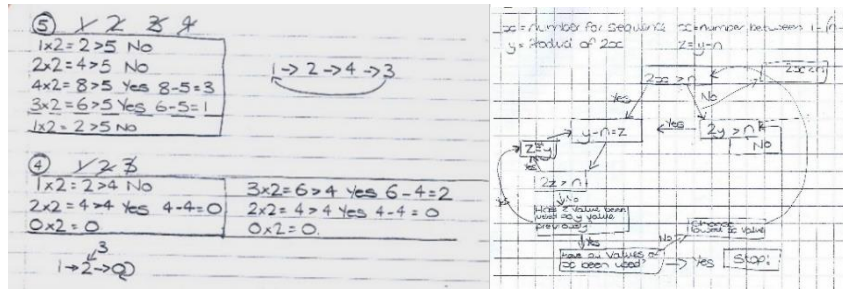 ⑤ 1 2 3 4
1x2 = 2>5 No
2x2 = 4>5 No
4x2 = 8>5 Yes 8-5=3
3x2 = 6>5 Yes 6-5=1
1x2 = 2>5 No
1→2→4→3
④ 1 2 3
1x2 = 2>4 No
2x2 = 4>4 Yes 4-4=0
0x2 = 0
3x2=6>4 Yes 6-4=2
2x2=4>4 Yes 4-4=0
0x2=0
3
1→2→0
x = number for sequence
y = Product of 2x
z = y-n
2x > n
2x < n
Yes
No
y-n=z
Yes
2y > n
No
z=y
Yes
2z > n
No
Has z value been used as y value previously
Yes
Have all values of x been used?
No
Change lowest x value
Yes
Stop.